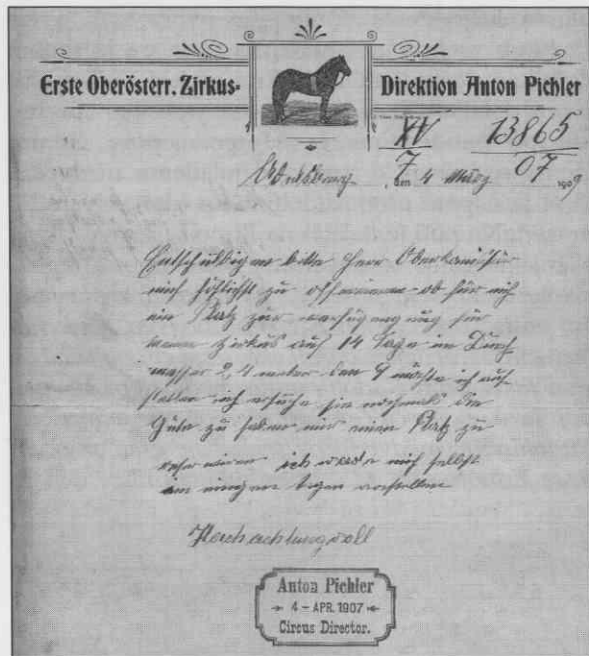 Erste Oberösterr. Zirkus-
Direktion Anton Pichler
XIV 13865
7 07
den 4 März 190 9
Entschuldigen bitte Herr Oberkomissär
mich höflichst zu ob für mich
ein Platz zur verfügung für
meinen Zirkus auf 14 Tage im Durch
messer 24 meter den 9 möchte ich auf
stellen ich ersuche sie nochmals die
Güte zu haben mir einen Platz zu
ich werde mich selbst
in einigen tagen vorstellen
Hochachtungsvoll
Anton Pichler
4 - APR. 1907
Circus Director.